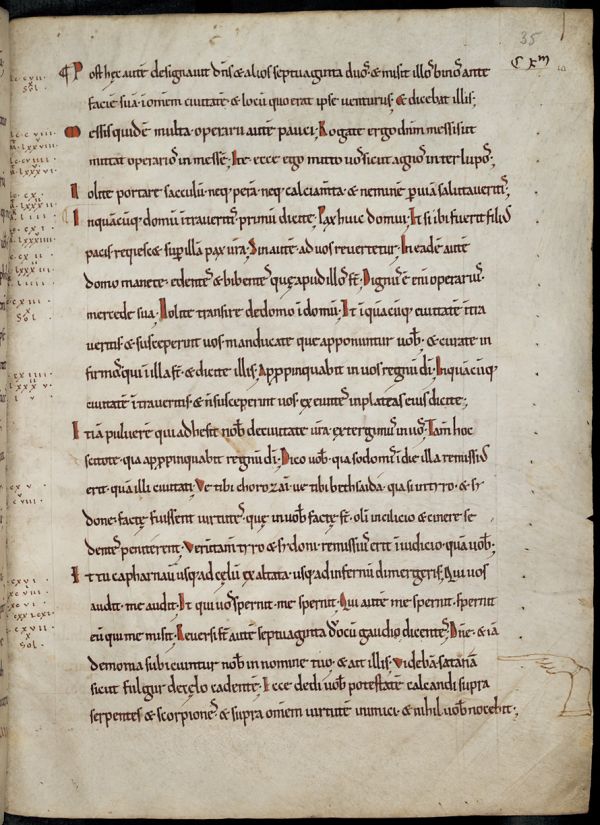 35
C Xm
Post hęc autē designauit dn̄s & alios septuaginta duos & misit illos binos ante
faciē suā in omēm ciuitatē & locū quo erat ipse venturus; & dicebat illis;
Messis quidē multa · operarii autē pauci; Rogate ergo dnm̄ messis ut
mittat operarios in messē; Ite · ecce ego mitto uos sicut agnos inter lupos;
Nolite portare sacculū neq; perā · neq; calciam̄ta · & neminē p uiā salutaueritis;
Inquācūq; domū intraueritis · primū dicite; Pax huic domui; Et si ibi fuerit filius
pacis requiesc& sup illā pax ura; Sin autē · ad uos reuertetur; In eadē autē
domo manete · edentes & bibentes quę apud illos st̄; Dignus ē enī operarius
mercede sua; Nolite transire de domo in domū; Et in quācūq; ciuitatē intra
ueritis · & susceperint uos manducate que apponuntur uob̄ · & curate in
firmos qui in illa st̄ · & dicite illis; Appropinquabit in uos regnū dī; In quācūq;
ciuitatē intraueritis · & n̄ susceperint uos · exeuntes in plateas eius dicite;
Etiā puluerē qui adhesit nob̄ de ciuitate ur̄a · extergimus in uos; Tam̄ hoc
scitote · quia appropinquabit regnū dī; Dico uob̄ · quia sodomis in die illa remissius
erit · quā illi ciuitati; Ve tibi chorozāi · ue tibi bethsaida · quia si in tyro · & sy
done · factę fuissent uirtutes · quę in uob̄ factę st̄ · olī in cilicio & cinere se
dentes peniterent; Verūtam̄ tyro & sydoni · remissius erit in iudicio · quā uob̄;
Et tu capharnaū usq; ad cęlū exaltata · usq; ad infernū dimergeris; Qui uos
audit · me audit; Et qui uos spernit · me spernit; Qui autē me spernit · spernit
eū qui me misit; Reuersi st̄ autē septuaginta duo cū gaudio dicentes; Dn̄e · & iā
demonia subiciuntur nob̄ in nomine tuo · & ait illis; Videbā satanā
sicut fulgur de cęlo cadentē; Ecce dedi uob̄ potestatē calcandi supra
serpentes & scorpiones & supra om̄em uirtutē inimici · & nihil uob̄ nocebit;